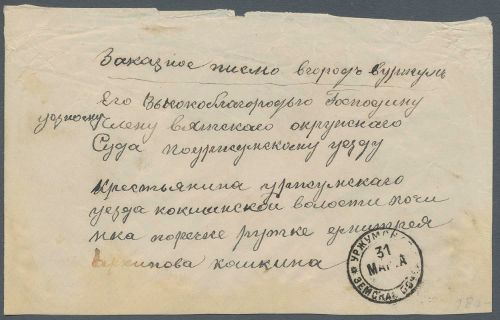 Заказное писмо вгородъ вуржумъ
Его Высокоблагородью Господину
уезному Члену вятскаго окружнаго
Суда поуржумскому уезду
Крестьянина уржумскаго
уезда кокшинской волости почи
нка поречке рутке дмитрея
кошкина
УРЖУМ
31
МАРТА
ЗЕМСКАЯ ПОЧ